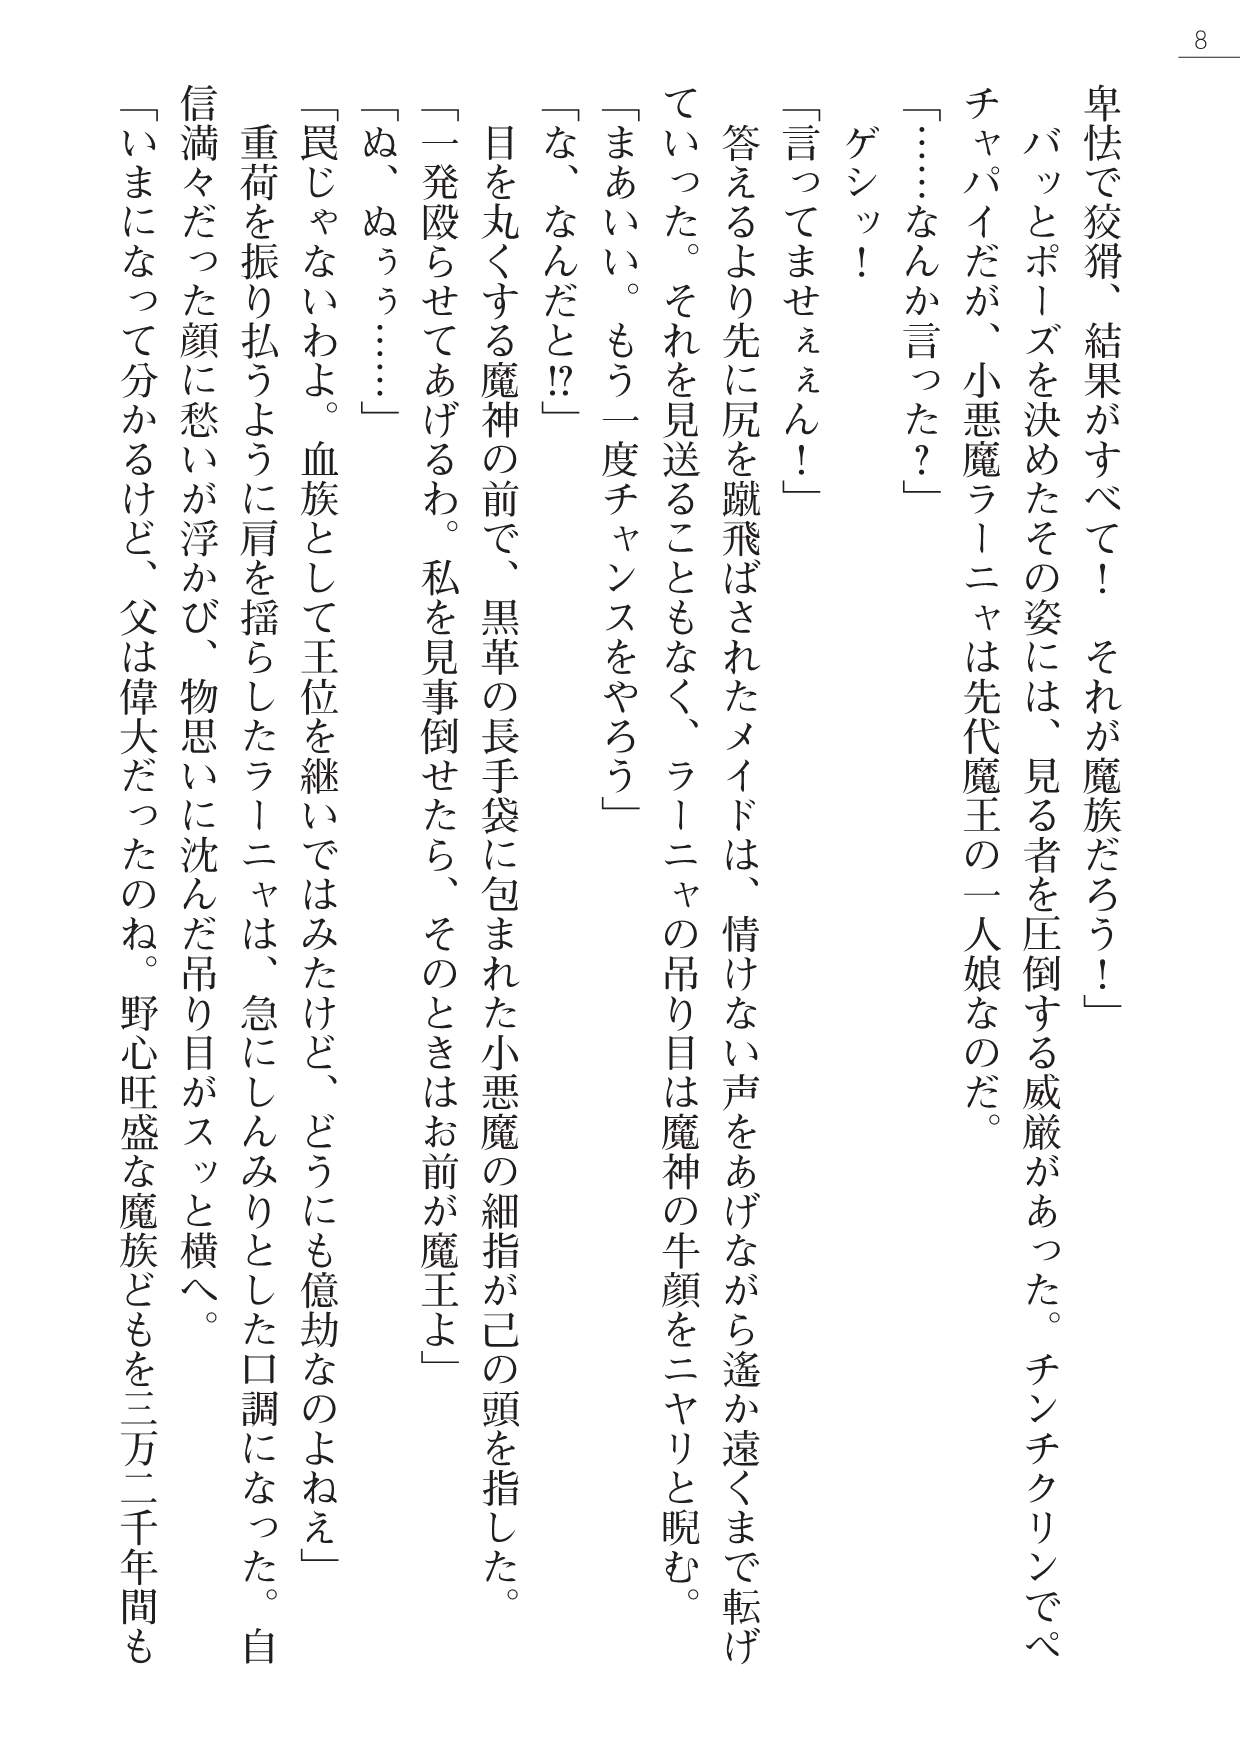 8
卑怯で狡猾、結果がすべて！　それが魔族だろう！」
　バッとポーズを決めたその姿には、見る者を圧倒する威厳があった。チンチクリンでペ
チャパイだが、小悪魔ラーニャは先代魔王の一人娘なのだ。
「……なんか言った？」
　ゲシッ！
「言ってませぇぇん！」
　答えるより先に尻を蹴飛ばされたメイドは、情けない声をあげながら遙か遠くまで転げ
ていった。それを見送ることもなく、ラーニャの吊り目は魔神の牛顔をニヤリと睨む。
「まあいい。もう一度チャンスをやろう」
「な、なんだと!?」
　目を丸くする魔神の前で、黒革の長手袋に包まれた小悪魔の細指が己の頭を指した。
「一発殴らせてあげるわ。私を見事倒せたら、そのときはお前が魔王よ」
「ぬ、ぬぅぅ……」
「罠じゃないわよ。血族として王位を継いではみたけど、どうにも億劫なのよねえ」
　重荷を振り払うように肩を揺らしたラーニャは、急にしんみりとした口調になった。自
信満々だった顔に愁いが浮かび、物思いに沈んだ吊り目がスッと横へ。
「いまになって分かるけど、父は偉大だったのね。野心旺盛な魔族どもを三万二千年間も